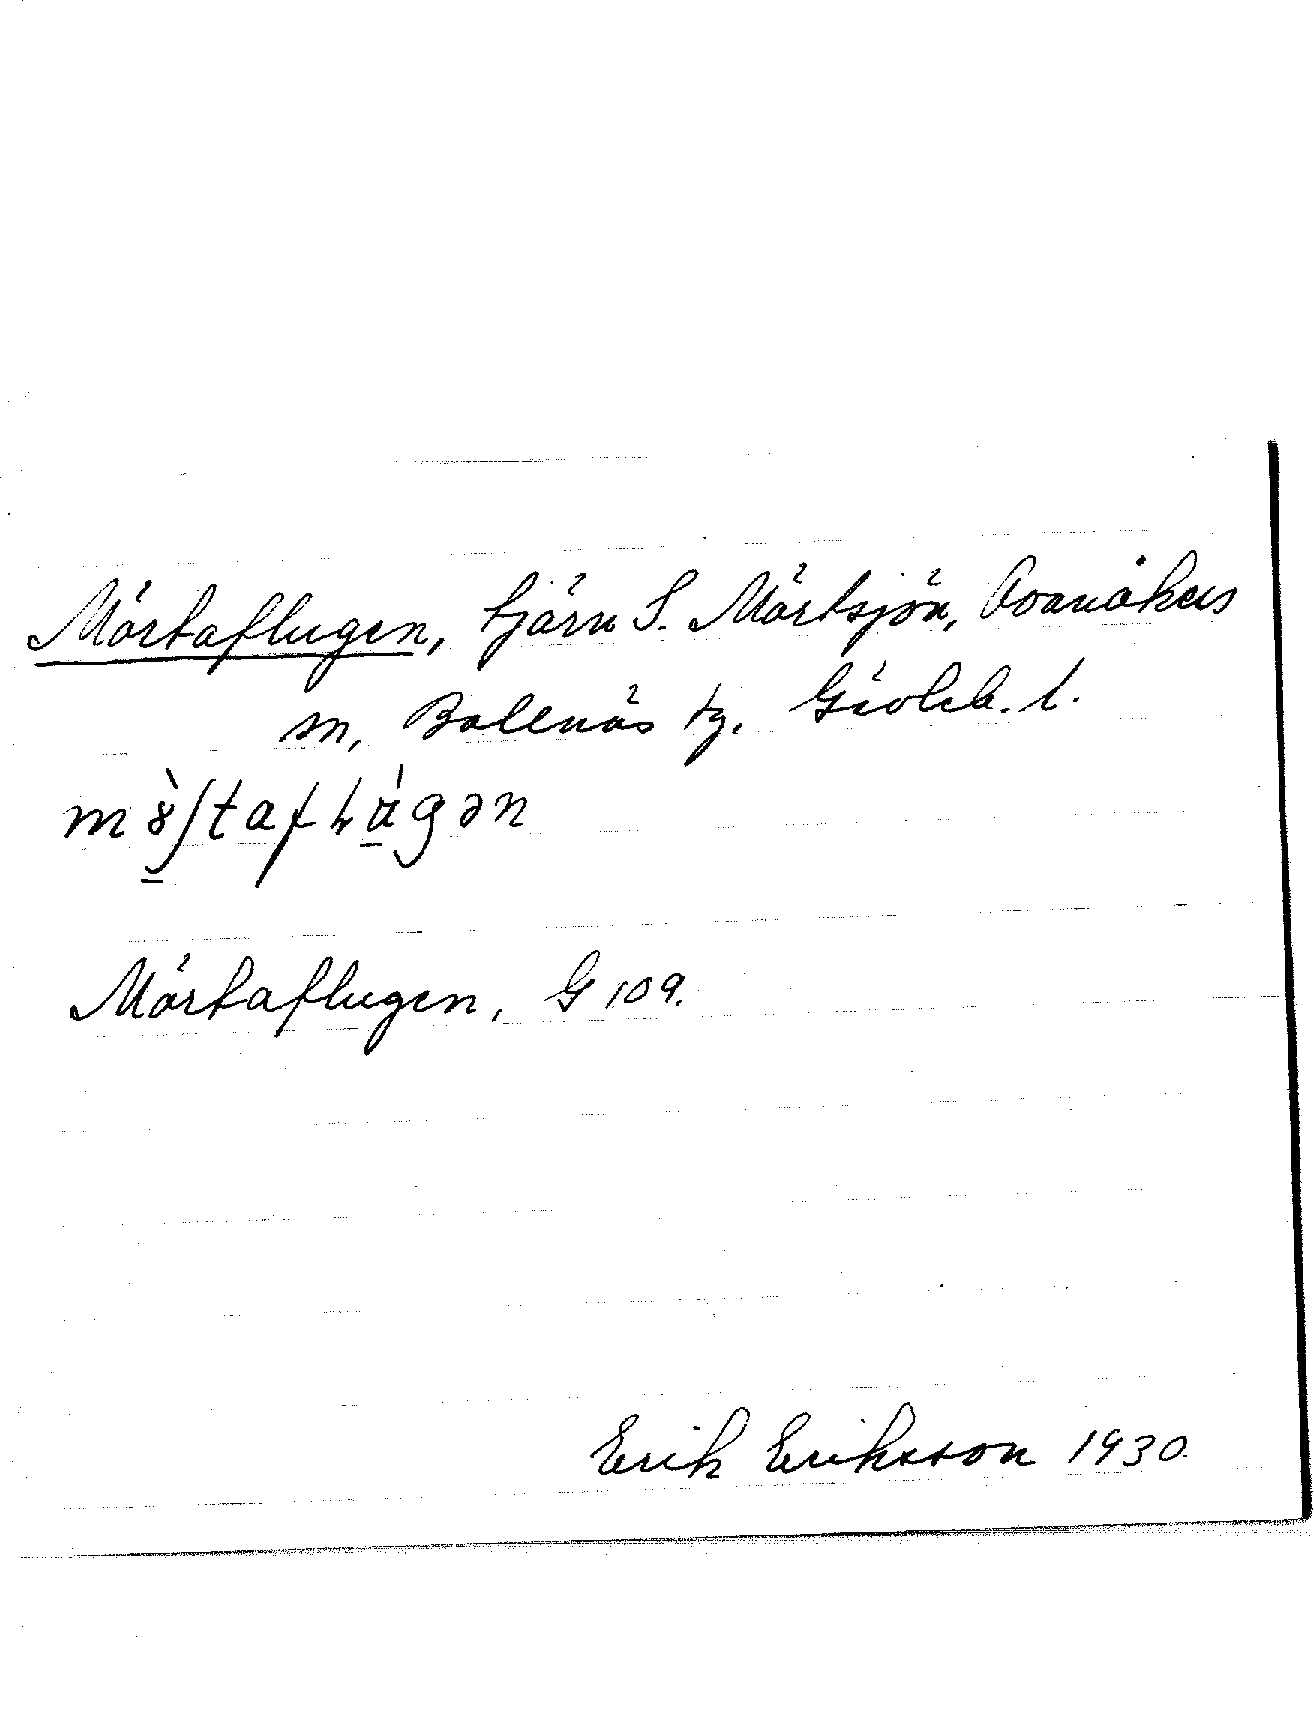 Mörtaflugen, tjärn S. Mörtsjön, Ovanåkers
sn, Bollnäs tg, Gävleb. l.
Mörtaflugen, G 109.
Erik Eriksson 1930.